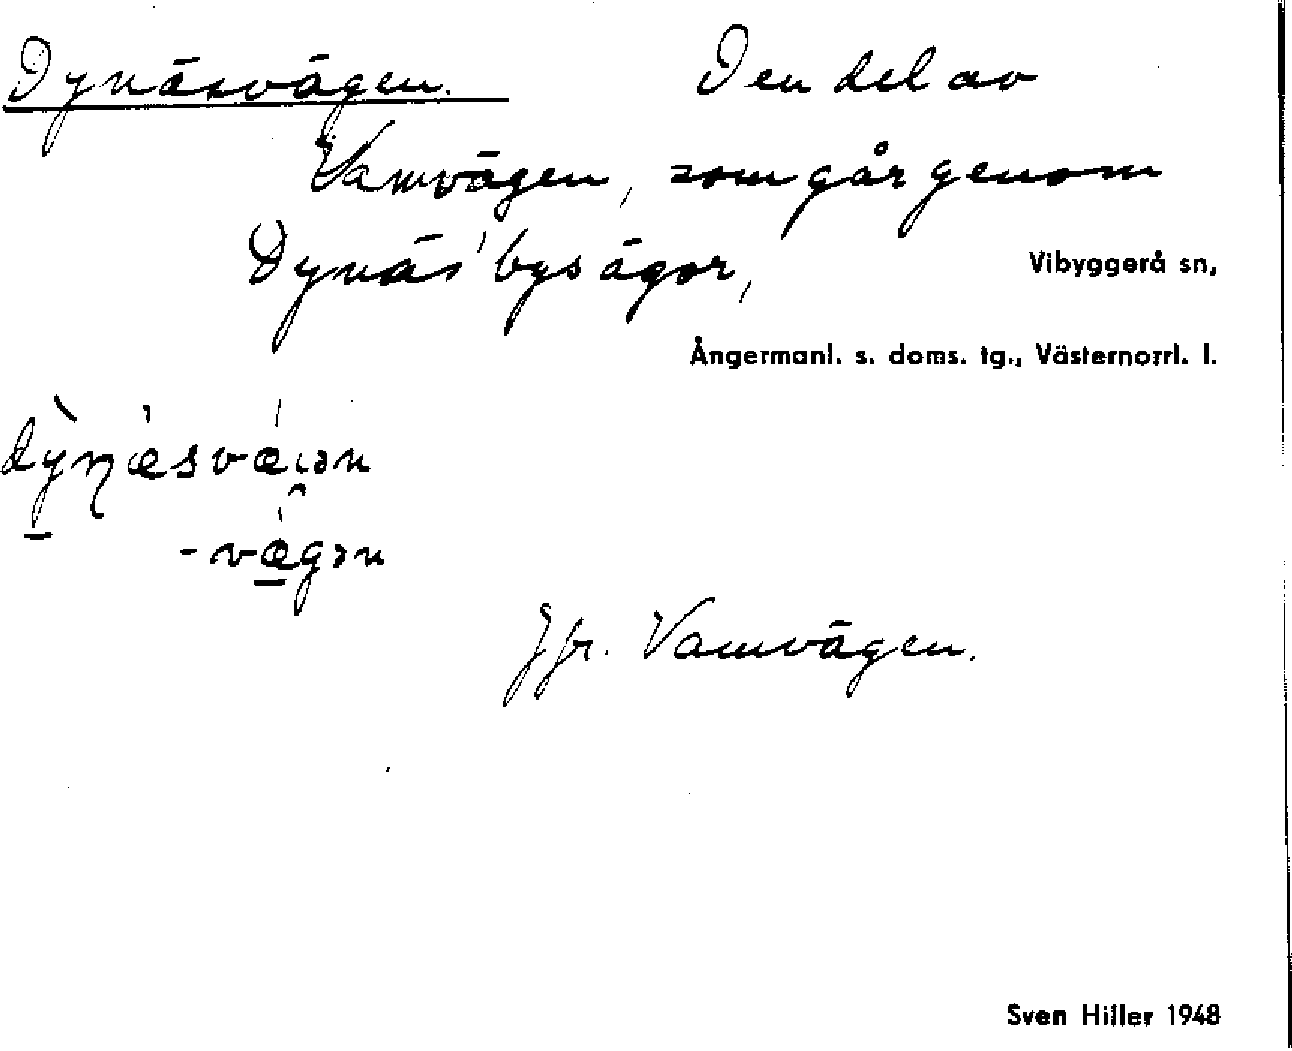 Dynäsvägen. Den del av
Vamvägen, som går genom
Dynäs' bys ägor,
Vibyggerå sn,
Ångermanl. s. doms. tg., Västernorrl. l.
dỳ̠ŋæsvæɩən
-væ̠gən
Jfr. Vamvägen.
Sven Hiller 1948